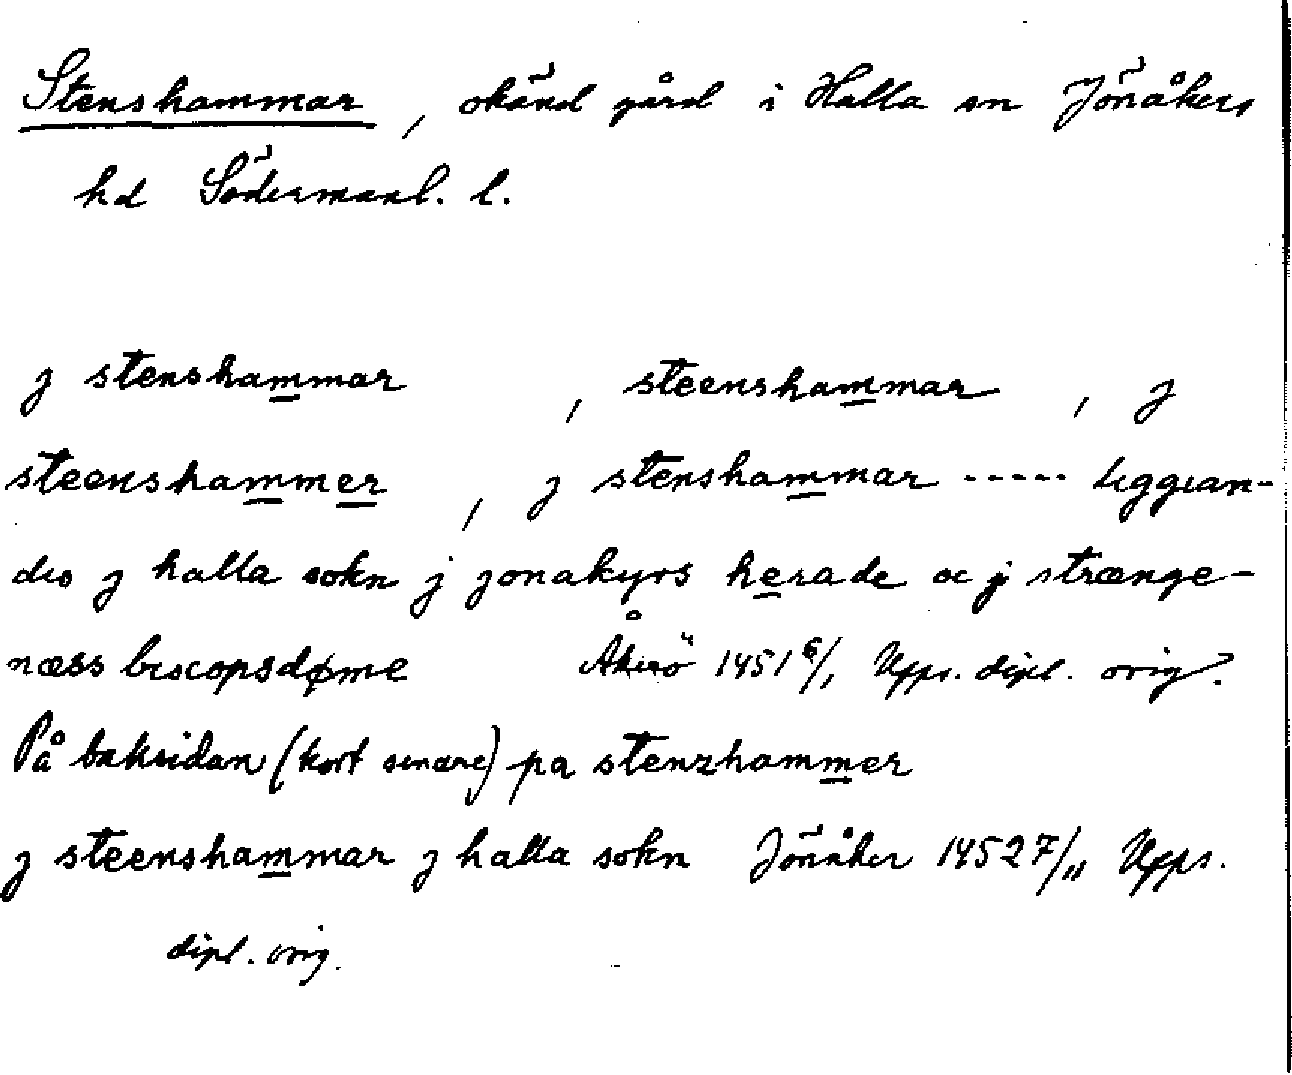 Stenshammar, okänd gård i Halla sn Jönåkers
hd Södermanl. l.
j stenshammar, steenshammar, j
steenshammer, j stenshammar ----- liggian-
dis j halla sokn j jonakyrs herade oc j strænge-
næss biscopsdøme Åkerö 1451 6/1 Upps. dipl. orig.
På baksidan (kort senare) pa stenzhammer
j steenshammar j halla sokn Jönåker 1452 7/11 Upps.
dipl. orig.